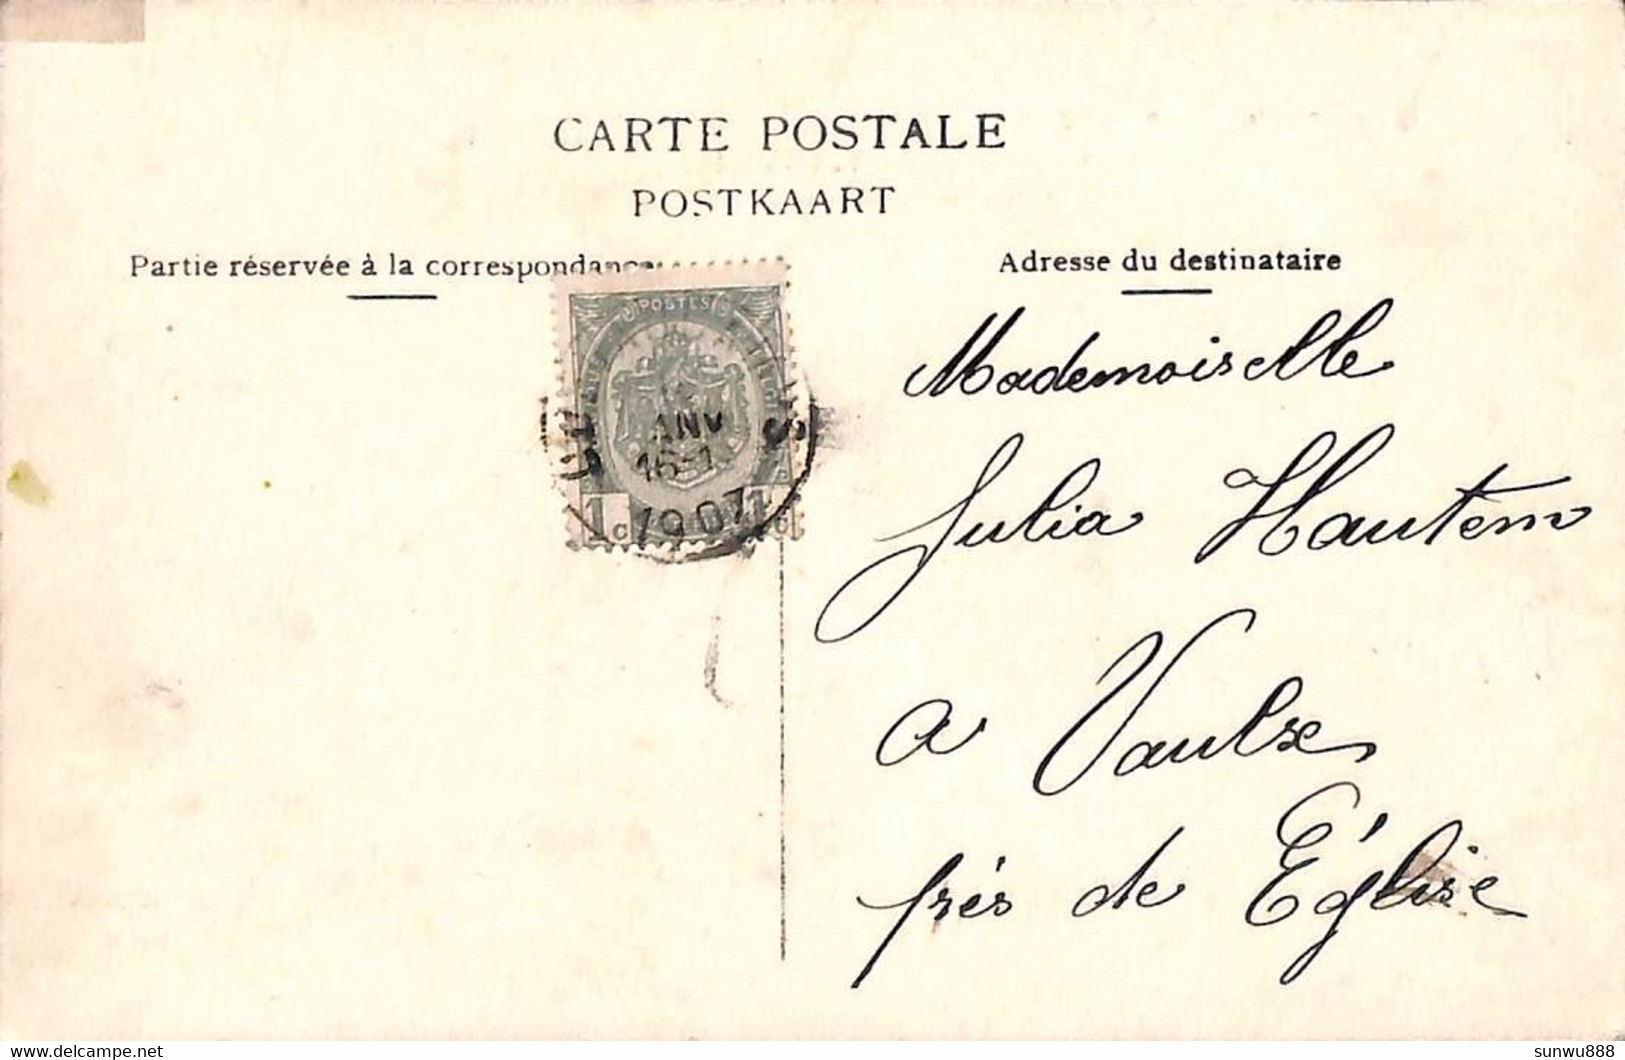 CARTE POSTALE
POSTKAART
Partie réservée à la correspondance
Adresse du destinataire
POSTES
ANV
16-1
1907
1c 1c
Mademoiselle
Julia Hautem
a Vaulx
prés de Église
delcampe.net
sunwu888